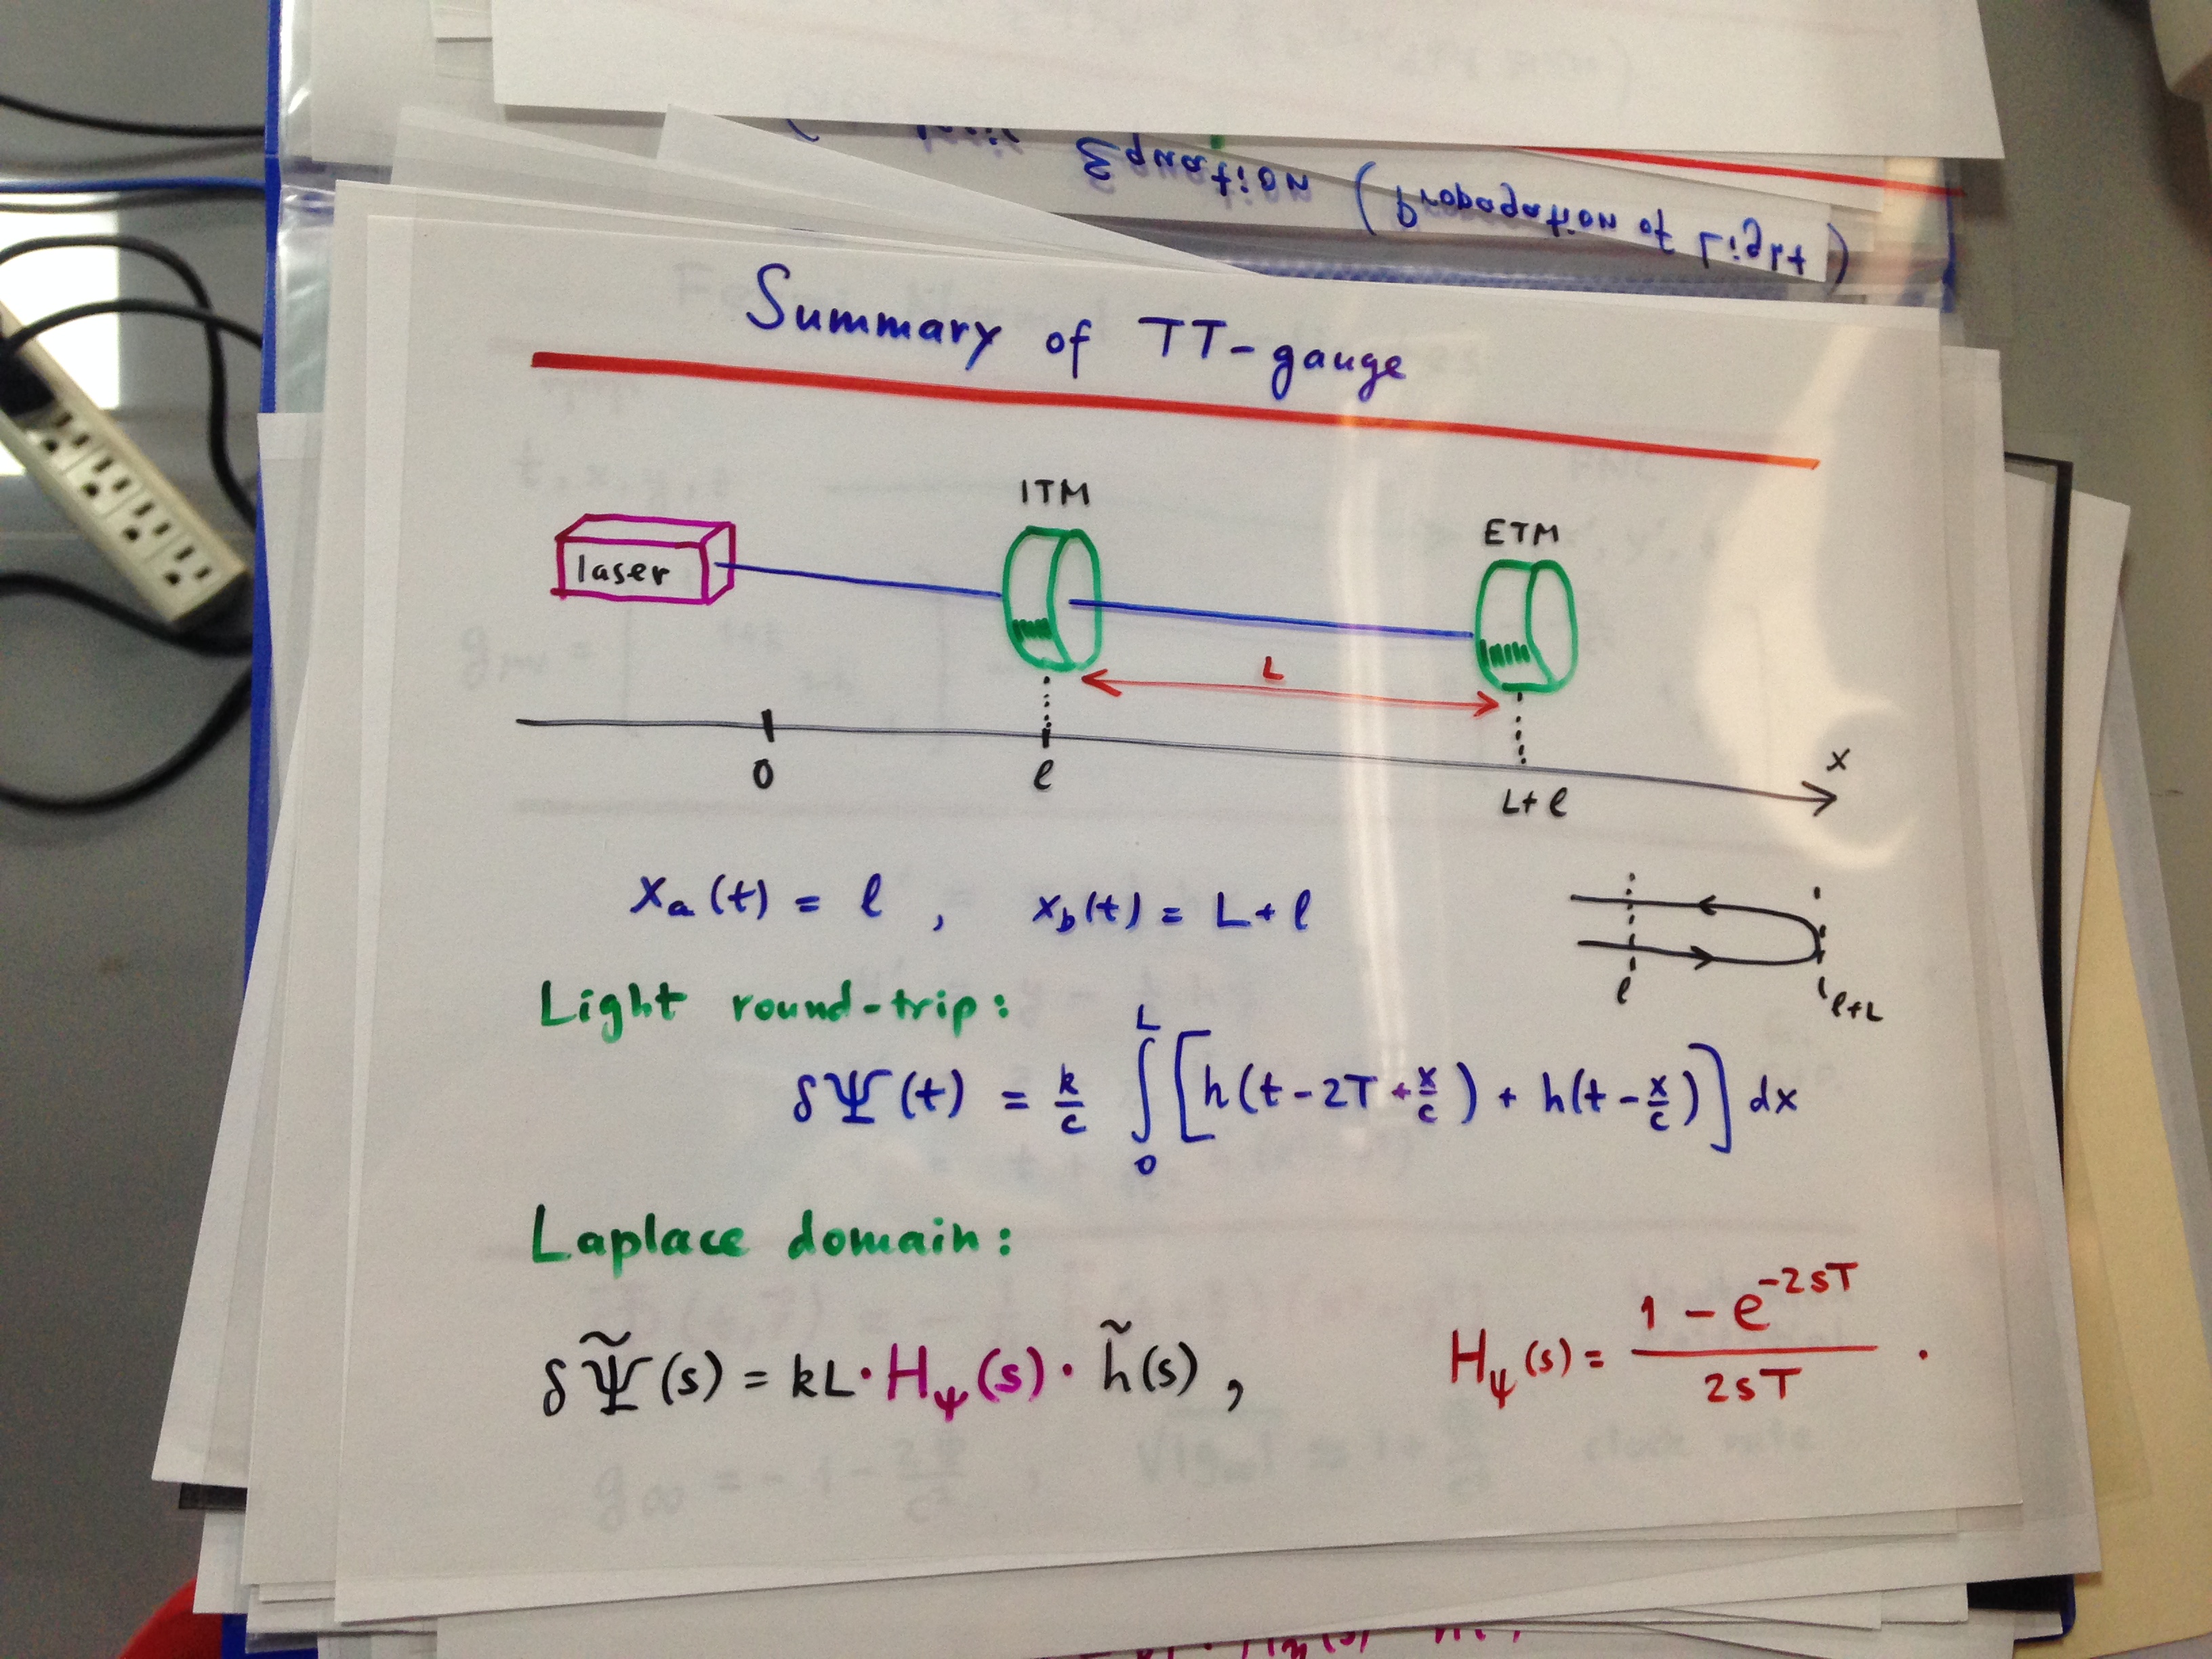 Equation (Propagation of Light)
Summary of TT-gauge
ITM
ETM
laser
L
x
0
ℓ
L+ℓ
xₐ(t) = ℓ , x_b(t) = L+ℓ
ℓ
ℓ+L
Light round-trip:
δΨ(t) = k/c ∫₀ᴸ [h(t-2T+x/c) + h(t-x/c)] dx
Laplace domain:
δΨ̃(s) = kL·H_ψ(s)·h̃(s), H_ψ(s) = (1 - e^(-2sT))/(2sT) .